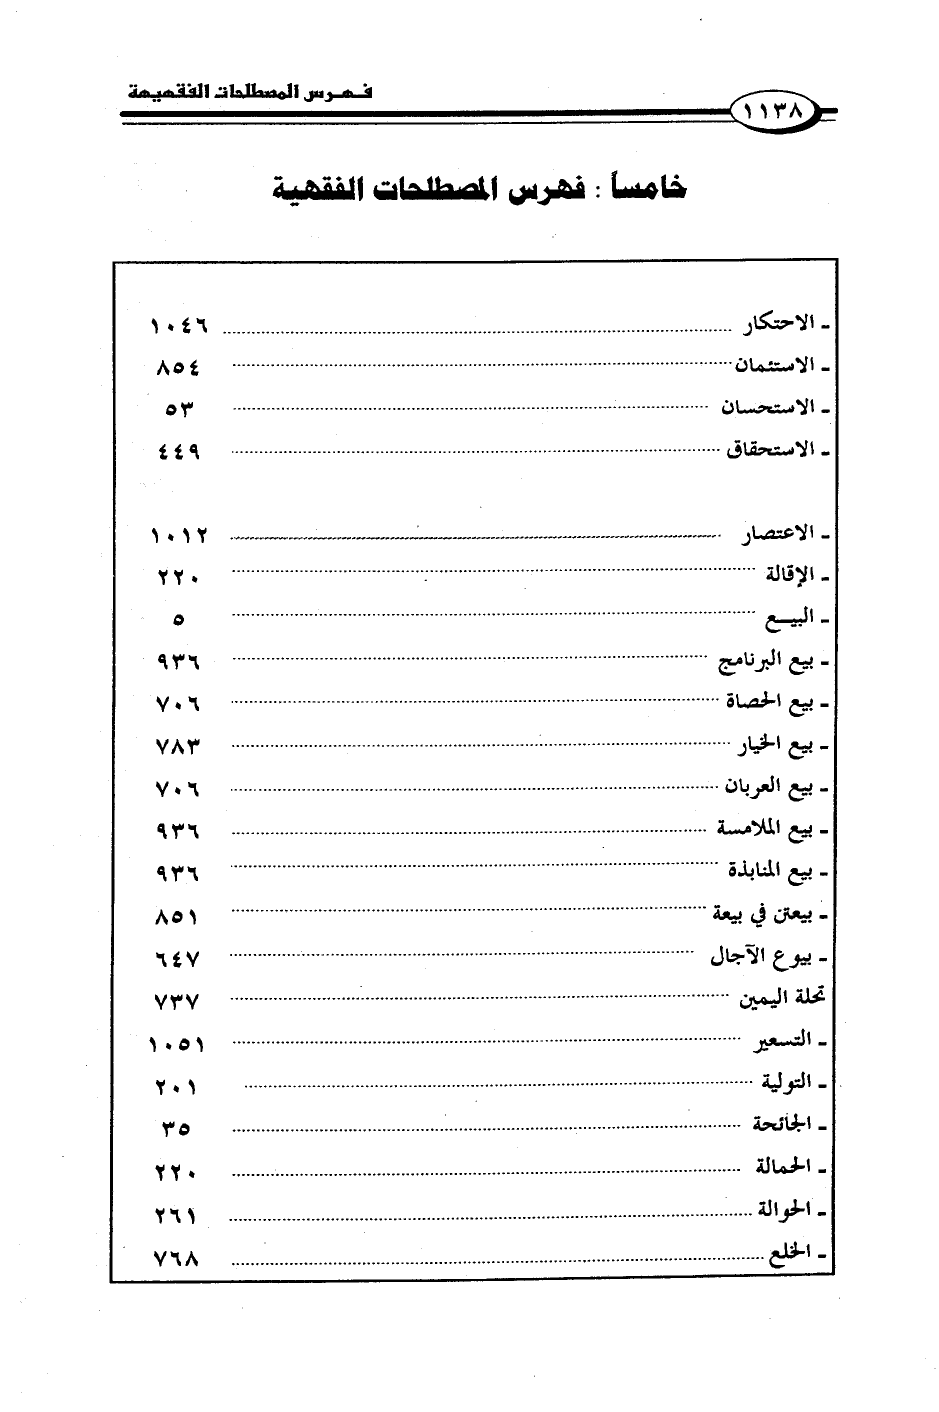 فهرس المصطلحات الفقهيهة
١١٣٨
خامساً : فهرس المصطلحات الفقهية
ـ الاحتكار ........ ١٠٤٦
ـ الاستئمان ........ ٨٥٤
ـ الاستحسان ........ ٥٣
ـ الاستحقاق ........ ٤٤٩
ـ الاعتصار ........ ١٠١٢
ـ الإقالة ........ ٢٢٠
ـ البيـــع ........ ٥
ـ بيع البرنامج ........ ٩٣٦
ـ بيع الحصاة ........ ٧٠٦
ـ بيع الخيار ........ ٧٨٣
ـ بيع العربان ........ ٧٠٦
ـ بيع الملامسة ........ ٩٣٦
ـ بيع المنابذة ........ ٩٣٦
ـ بيعتن في بيعة ........ ٨٥١
ـ بيوع الآجال ........ ٦٤٧
تحلة اليمين ........ ٧٣٧
ـ التسعير ........ ١٠٥١
ـ التولية ........ ٢٠١
ـ الجائحة ........ ٣٥
ـ الحمالة ........ ٢٢٠
ـ الحوالة ........ ٢٦١
ـ الخلع ........ ٧٦٨